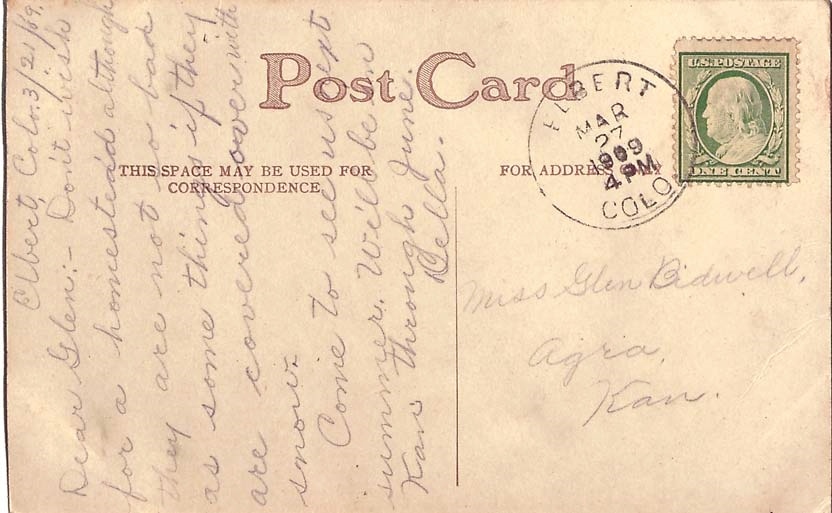 Post Card
THIS SPACE MAY BE USED FOR
CORRESPONDENCE
FOR ADDRESS ONLY
U.S. POSTAGE
ONE CENT
ELBERT
MAR
27
1909
4 PM
COLO.
Elbert, Colo. 3/21/09.
Dear Glen:- Don't wish
for a homestead although
they are not so bad
as some things if they
are covered over with
snow.
Come to see us next
summer. Will be in
Kan. through June.
Della.
Miss Glen Bidwell,
Agra,
Kan.